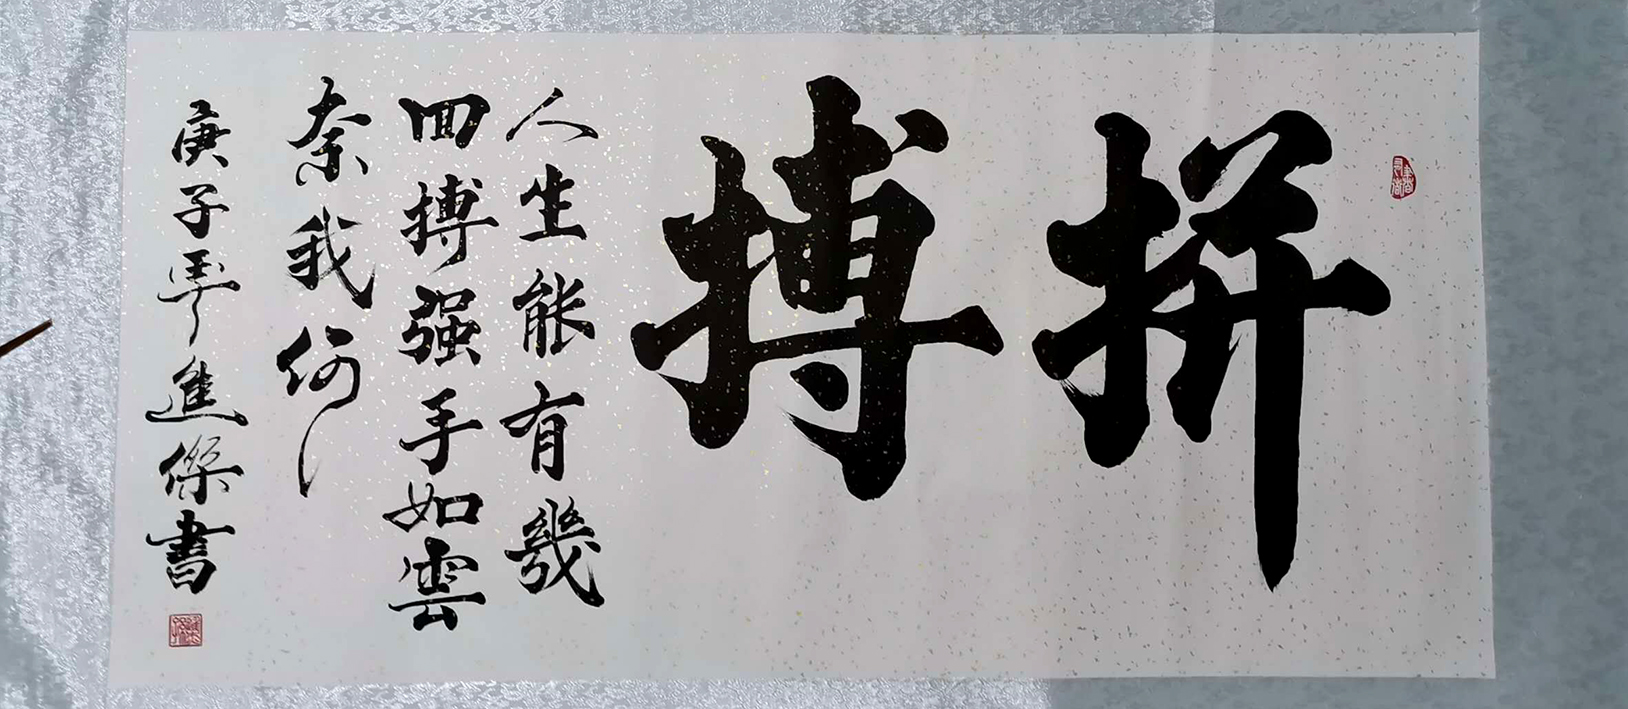 拼搏
人生能有幾
回搏强手如雲
奈我何
庚子年進傑書